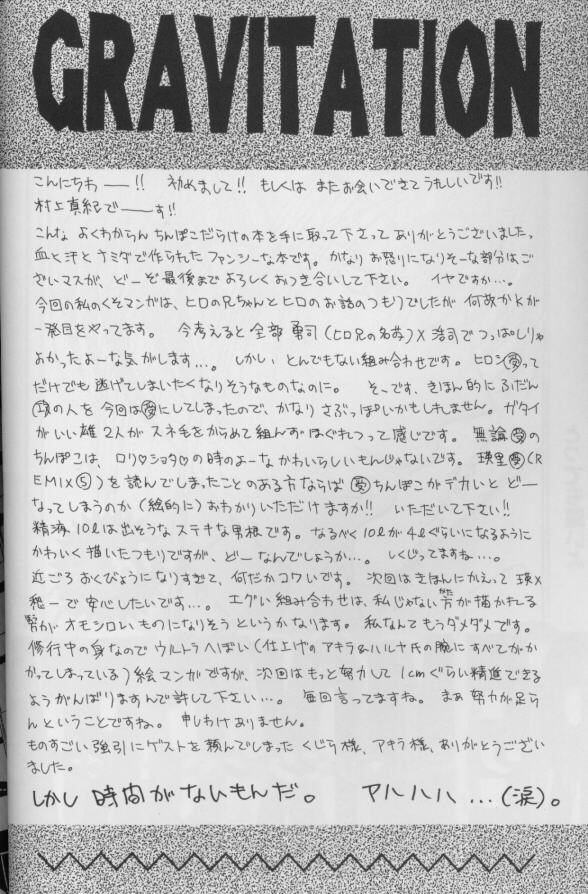 GRAVITATION
こんにちわ――!! 初めまして!! もしくは またお会いできてうれしいです!!
村上真紀で――す!!
こんな よくわからん ちんぽこだらけの本を手に取って下さって ありがとうございました。
血と汗とナミダで作られた ファンシーな本です。 かなり お怒りになりそーな部分はご
ざいマスが、どーぞ最後まで よろしくおつき合いして下さい。 イヤですか…。
今回の私のくそマンガは、ヒロの兄ちゃんとヒロのお話のつもりでしたが 何故かKが
一発目をやってます。 今考えると 全部 勇司(ヒロ兄の名前)×浩司で つっぱしりゃ
よかったよーな気がします…。 しかし、とんでもない組み合わせです。ヒロン受って
だけでも 逃げてしまいたくなりそうなものなのに。 そーです、きほん的に ふだん
攻の人を 今回は受にしてしまったので、かなり さぶっぽいかもしれません。ガタイ
がいい雄2人が スネ毛をからめて組んずほぐれつって感じです。 無論受の
ちんぽこは、ロリ♡ショタ♡の時のよーな かわいらしいもんじゃないです。 瑛里受(R
EMIX⑤)を読んでしまったことのある方ならば 受ちんぽこがデカいと どー
なってしまうのか(絵的に)おわかりいただけますか!! いただいて下さい!!
精液10ℓは出そうな ステキな男根です。 なるべく 10ℓが 4ℓぐらいになるように
かわいく描いたつもりですが、どーなんでしょうか…。 しくじってますね…。
近ごろ おくびょうになりすぎて、何だかコワいです。 次回はきほんにかえって 瑛×
秀一で安心したいです…。 エグい組み合わせは、私じゃない方が描かれる
方が オモシロいものになりそう というかなります。 私なんてもうダメダメです。
修行中の身なのでウルトラへぼい(仕上げのアキラ&ハルヤ氏の腕にすべてがか
かってしまっている)絵マンガですが、次回はもっと努力して 1cmぐらい精進できる
ようがんばりますんで許して下さい…。 毎回言ってますね。 まあ 努力が足ら
んということですね。 申しわけありません。
ものすごい強引にゲストを頼んでしまった くじら様、アキラ様、ありがとうござい
ました。
しかし 時間がないもんだ。 アハハハ…(涙)。